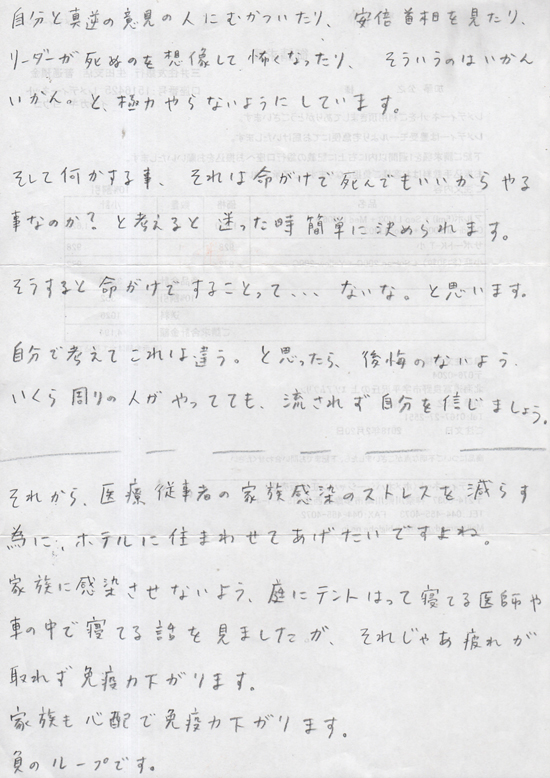 自分と真逆の意見の人にむかついたり、 安倍首相を見たり、
リーダーが死ぬのを想像して怖くなったり、 そういうのはいかん
いかん。と、極力やらないようにしています。
そして何かする事、 それは命がけで死んでもいいからやる
事なのか？と考えると 迷った時簡単に決められます。
そうすると 命がけですることって、、、 ないな。と思います。
自分で考えてこれは違う。と思ったら、後悔のないよう、
いくら周りの人がやってても、流されず自分を信じましょう。
それから、医療従事者の家族感染のストレスを減らす
為に、ホテルに住まわせてあげたいですよね。
家族に感染させないよう、庭にテントはって寝てる医師や
車の中で寝てる話を見ましたが、 それじゃあ疲れが
取れず免疫力下がります。
家族も心配で免疫力下がります。
負のループです。